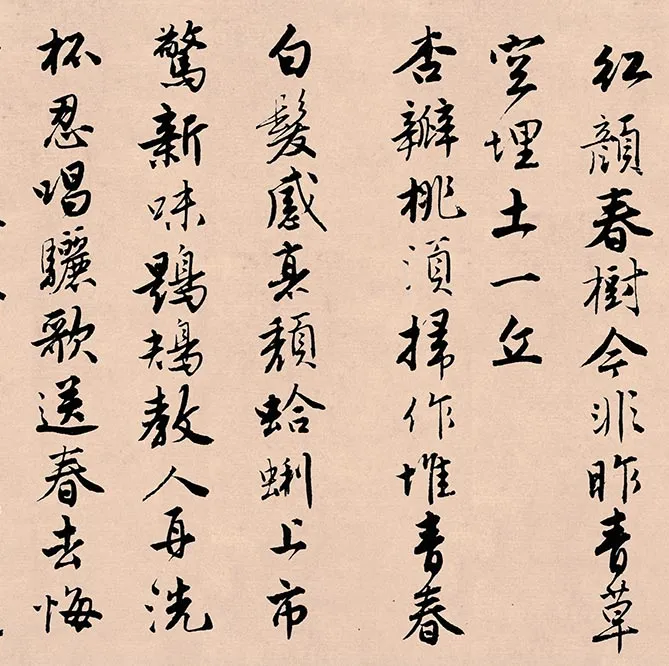 紅顏春樹今非昨青草
空埋土一丘
杏瓣桃須掃作堆青春
白髮感衰頹蛤蜊上市
驚新味鶗鴂教人再洗
杯忍唱驪歌送春去悔